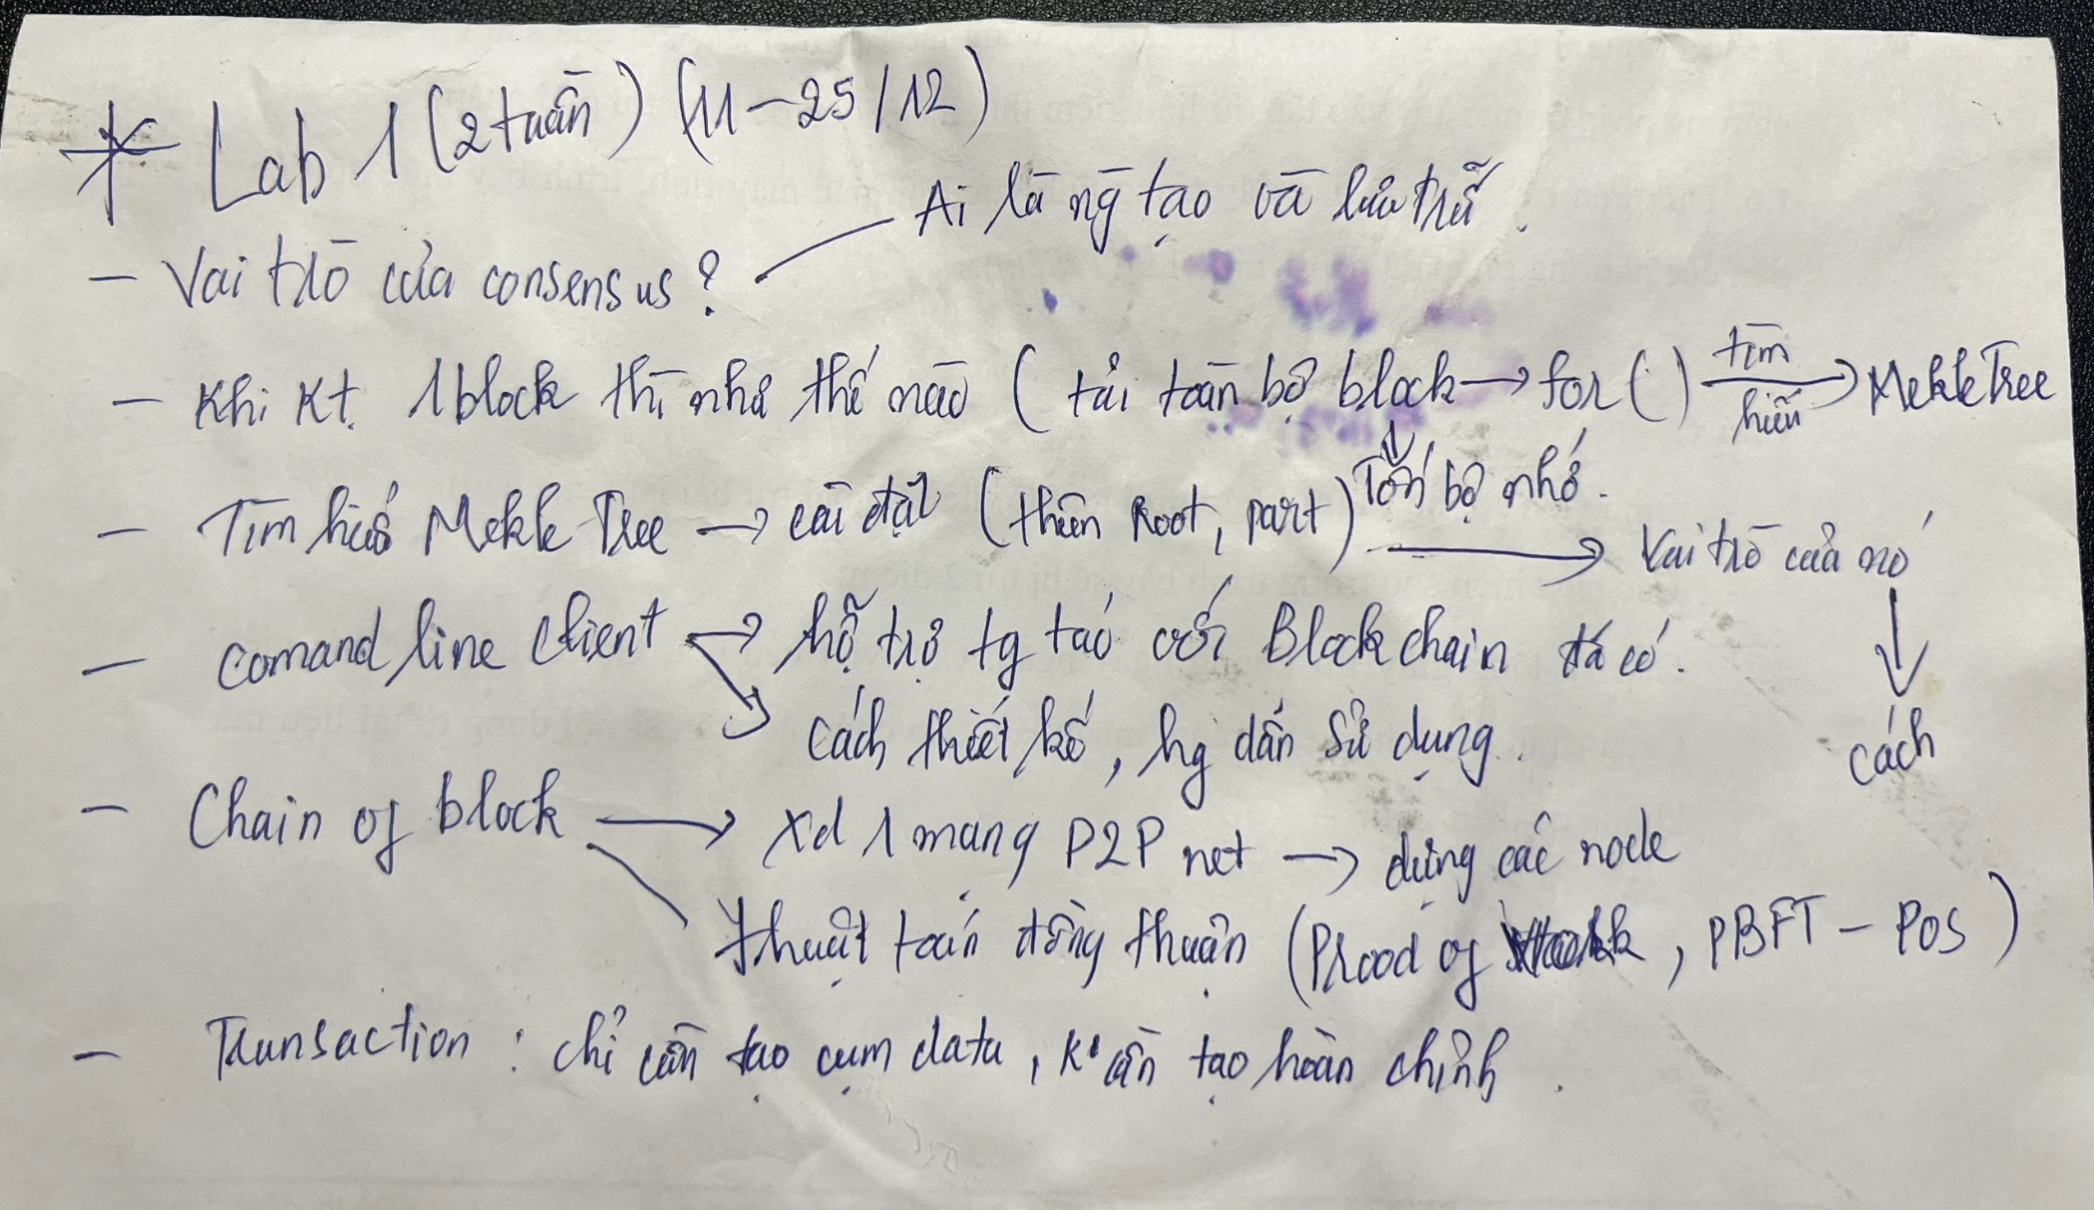 * Lab 1 (2 tuần) (11-25/12)
- Vai trò của consensus? — Ai là ng tạo và lưu trữ.
- Khi Kt. 1 block thì như thế nào ( tải toàn bộ block → for ( ) tìm hiểu → Mekle Tree
↓ Tốn bộ nhớ.
- Tìm hiểu Mekle Tree → cài đặt ( Root, part) → Vai trò của nó
↓ cách
- Comand line client → hỗ trợ tg tác với Blockchain đã có.
→ cách thiết kế, hg dẫn sử dụng.
- Chain of block → Xd 1 mạng P2P net → dựng các node
thuật toán đồng thuận (Prood of Work, PBFT - POS)
- Transaction : chỉ cần tạo cụm data, K cần tạo hoàn chỉnh.